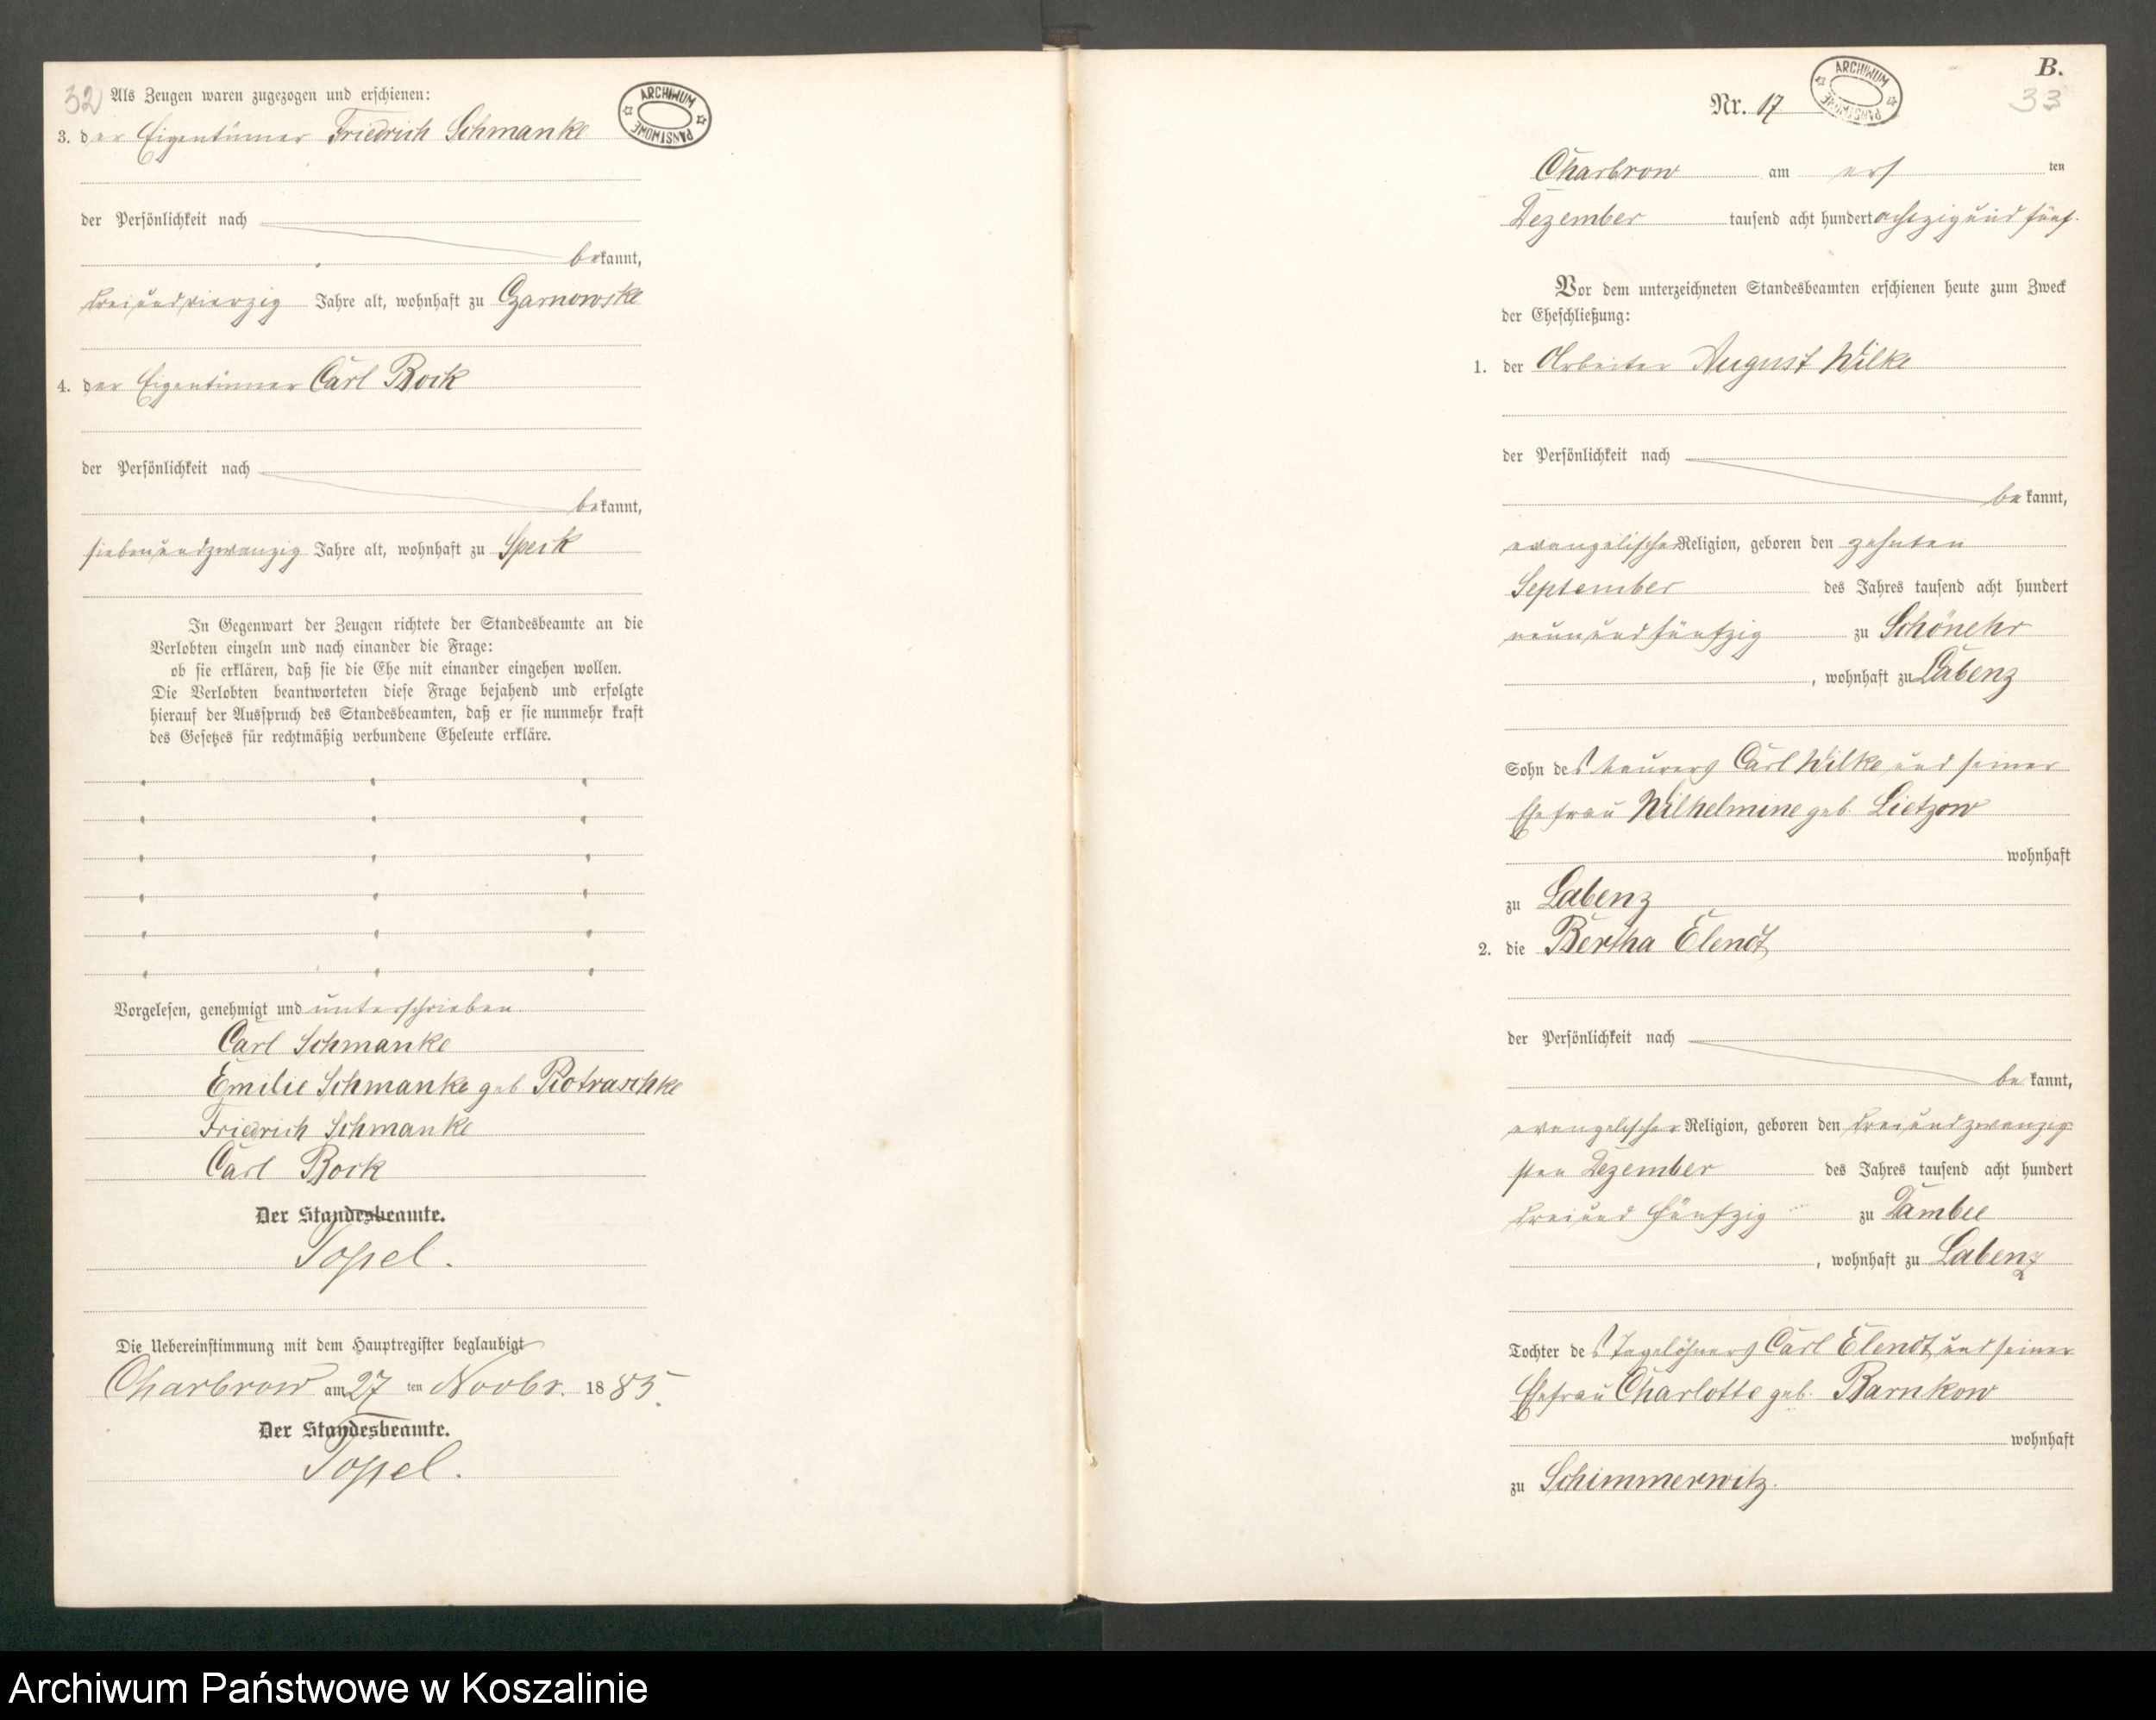 32
Als Zeugen waren zugezogen und erschienen:
3. der Eigentümer Friedrich Schmanke
ARCHIWUM PAŃSTWOWE
der Persönlichkeit nach
bekannt,
dreiundvierzig Jahre alt, wohnhaft zu Czarnowske
4. der Eigentümer Carl Bock
der Persönlichkeit nach
bekannt,
siebenundzwanzig Jahre alt, wohnhaft zu Speck
In Gegenwart der Zeugen richtete der Standesbeamte an die
Verlobten einzeln und nach einander die Frage:
ob sie erklären, daß sie die Ehe mit einander eingehen wollen.
Die Verlobten beantworteten diese Frage bejahend und erfolgte
hierauf der Ausspruch des Standesbeamten, daß er sie nunmehr kraft
des Gesetzes für rechtmäßig verbundene Eheleute erkläre.
Vorgelesen, genehmigt und unterschrieben
Carl Schmanke
Emilie Schmanke geb. Piotraschke
Friedrich Schmanke
Carl Bock
Der Standesbeamte.
Topel.
Die Uebereinstimmung mit dem Hauptregister beglaubigt
Charbrow am 27 ten Novbr. 1885.
Der Standesbeamte.
Topel.
B.
33
Nr. 17
ARCHIWUM PAŃSTWOWE
Charbrow am ersten
Dezember tausend acht hundert achtzig und fünf.
Vor dem unterzeichneten Standesbeamten erschienen heute zum Zweck
der Eheschließung:
1. der Arbeiter August Wilke
der Persönlichkeit nach
bekannt,
evangelischer Religion, geboren den zehnten
September des Jahres tausend acht hundert
neunundfünfzig zu Schönehr
, wohnhaft zu Labenz
Sohn des Maurers Carl Wilke und seiner
Ehefrau Wilhelmine geb. Lietzow
wohnhaft
zu Labenz
2. die Bertha Elendt
der Persönlichkeit nach
bekannt,
evangelischer Religion, geboren den dreiundzwanzig
sten Dezember des Jahres tausend acht hundert
dreiundfünfzig zu Dambee
, wohnhaft zu Labenz
Tochter des Tagelöhners Carl Elendt und seiner
Ehefrau Charlotte geb. Barnkow
wohnhaft
zu Schimmerwitz.
Archiwum Państwowe w Koszalinie